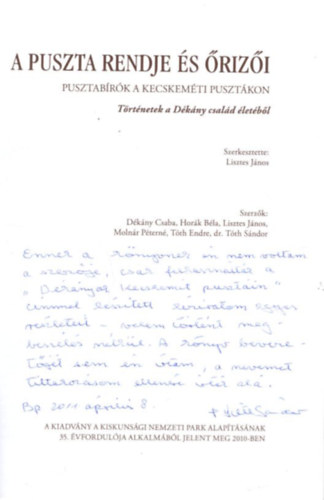 A PUSZTA RENDJE ÉS ŐRIZŐI
PUSZTABÍRÓK A KECSKEMÉTI PUSZTÁKON
Történetek a Dékány család életéből
Szerkesztette:
Lisztes János
Szerzők:
Dékány Csaba, Horák Béla, Lisztes János,
Molnár Péterné, Tóth Endre, dr. Tóth Sándor
Ennek a könyvnek én nem voltam
a szerzője, csak
"Dékányok Kecskemét pusztáin"
címmel készített kéziratom egyes
részleteit - velem történt meg-
beszélés nélkül. A könyv beveze-
tőjét sem én írtam, a nevemet
tiltakozásom ellenére írták alá.
Bp 2011 április 8.
A KIADVÁNY A KISKUNSÁGI NEMZETI PARK ALAPÍTÁSÁNAK
35. ÉVFORDULÓJA ALKALMÁBÓL JELENT MEG 2010-BEN